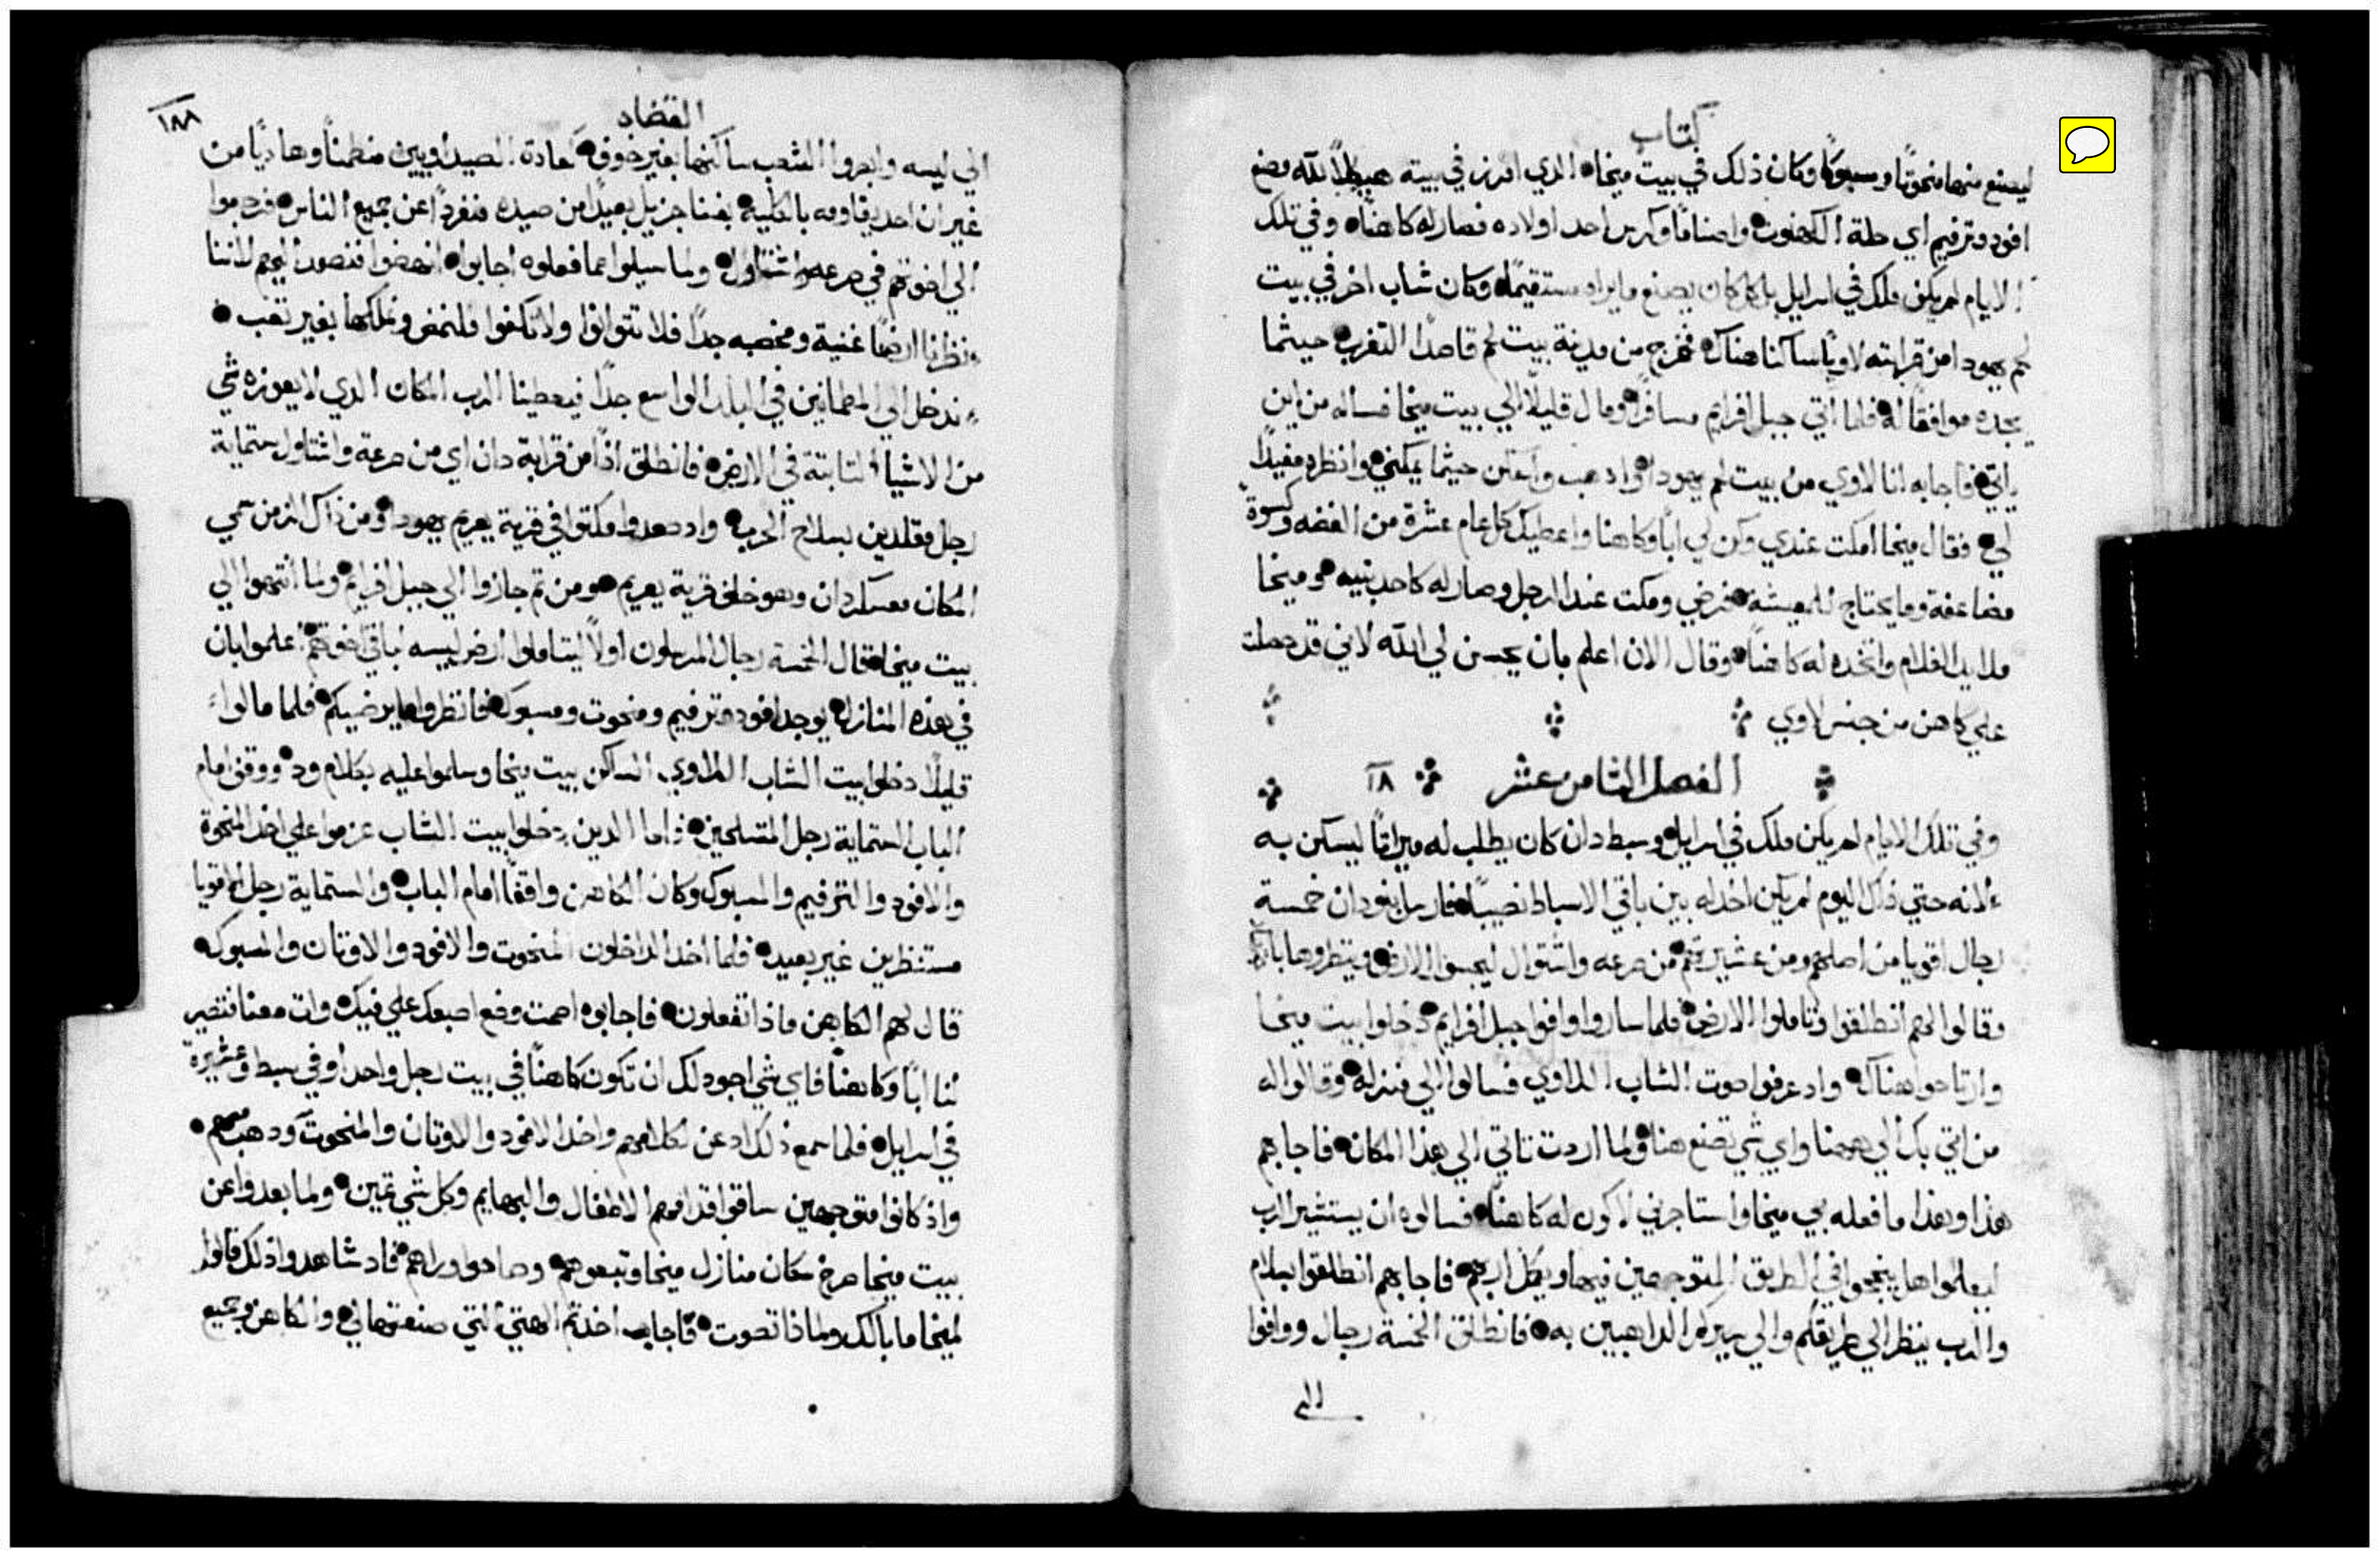 كتاب
ليصنع منها منحوتًا ومسبوكًا وكان ذلك في بيت ميخا الذي افرز في بيته هيكلاً لله وصنع
افود وترفيم اي حلة الكهنوت واصنامًا وكرس احد اولاده فصار له كاهنًا وفي تلك
الايام لم يكن ملك في اسرايل بل كل كان يصنع ما يراه مستقيمًا وكان شاب اخر في بيت
لحم يهودا من قرابته لاويًا ساكنا هناك فخرج من مدينة بيت لحم قاصدًا التغرب حيثما
يجده موافقًا له فلما اتي جبل افرايم مسافرًا ومال قليلاً الي بيت ميخا فساله من اين
ياتي فاجابه انا لاوي من بيت لحم يهودا واذهب واسكن حيثما يمكني وانظره مفيدًا
لي فقال ميخا امكت عندي وكن لي ابًا وكاهنا واعطيك كل عام عشرة من الفضه وكسوة
مضاعفة وما يحتاج للمعيشة فرضي ومكت عند الرجل وصار له كاحد بنيه وميخا
ملا يد الغلام واتخده له كاهنًا وقال الان اعلم بان يحسن لي الله لاني قد حصلت
علي كاهن من جنس لاوي
الفصل الثامن عشر ١٨
وفي تلك الايام لم يكن ملك في اسرايل وسبط دان كان يطلب له ميراثًا ليسكن به
لانه حتي ذاك اليوم لم يكن اخد له بين باقي الاسباط نصيبًا فارسل بنو دان خمسة
رجال اقويا من اصلهم ومن عشيرتهم من صرعه واشتوال ليجسوا الارض وينظروها
وقالوا لهم انطلقوا وتاملوا الارض فلما ساروا وافوا جبل افرايم دخلوا بيت ميخا
وارتاحوا هناك واد عرفوا صوت الشاب اللاوي فسالوا الي منزله وقالوا له
من اتي بك الي ههنا واي شي تصنع هنا ولما اردت تاتي الي هذا المكان فاجابهم
هذا وهذا ما فعله بي ميخا واستاجرني لاكون له كاهنًا فسالوه ان يستشير الرب
ليعلموا هل ينجحوا في الطريق المتوجهين فيها ويكمل اربهم فاجابهم انطلقوا بسلام
والرب ينظر الي طريقكم والي سيركم الداهبين به فانطلق الخمسة رجال ووافوا
الي
القضاه
١٨٨
الي ليسه وابصروا الشعب ساكنها بغير خوف كعادة الصيداويين مطمنًا وهاديًا من
غير ان احد يقاومه بالكلية بغنا جزيل بعيدًا من صيده منفردًا عن جميع الناس فرجعوا
الي اخوتهم في صرعه واشتاول ولما سيلوا عما فعلوه اجابوا انهضوا فنصعد اليهم لاننا
نظرنا ارضًا غنية ومخصبه جدًا فلا تتوانوا ولا تكفوا فلنمض ونملكها بغير تعب
ندخل الي المطمانين في البلد الواسع جدًا فيعطينا الرب المكان الدي لا يعوزه شي
من الاشيا النابتة في الارض فانطلق اذًا من قرابة دان اي من صرعة واشتاول ستماية
رجل مقلدين بسلاح الحرب واد صعدوا مكتوا في قرية يعريم يهودا ومن ذاك الزمن سمي
المكان معسكر دان وهو خلف قرية يعريم ومن تم جازوا الي جبل افرايم ولما انتهوا الي
بيت ميخا قال الخمسة رجال المرسلون اولاً ليتاملوا ارض ليسه لباقي اخوتهم اعلموا بان
في هذه المنازل يوجد افود وترفيم ومنحوت ومسبوك فانظروا ما يرضيكم فلما مالوا
قليلاً دخلوا بيت الشاب اللاوي الساكن بيت ميخا وسلموا عليه بكلام ود ووقف امام
الباب الستماية رجل المتسلحين واما الدين دخلوا بيت الشاب عزموا علي اخد المنحوة
والافود والترفيم والمسبوك وكان الكاهن واقفًا امام الباب والستماية رجل الاقويا
مستنظرين غير بعيد فلما اخد الداخلون المنحوت والافود والاوتان والمسبوكه
قال لهم الكاهن ماذا تفعلون فاجابوه اصمت وضع اصبعك علي فيك وات معنا فتصير
لنا ابًا وكاهنًا فاي شي اجود لك ان تكون كاهنًا في بيت رجل واحد او في سبط وعشيرة
في اسرايل فلما سمع ذلك ادعن لكلامهم واخد الافود والاوتان والمنحوت ودهب معهم
واذ كانوا متوجهين ساقوا قدامهم الاطفال والبهايم وكل شي تمين ولما بعدوا عن
بيت ميخا صرخ سكان منازل ميخا وتبعوهم وصاحوا وراهم فاد شاهدوا ذلك قالوا
لميخا ما بالك ولماذا تصوت فاجاب اخدتم الهتي التي صنعتها لي والكاهن وجميع